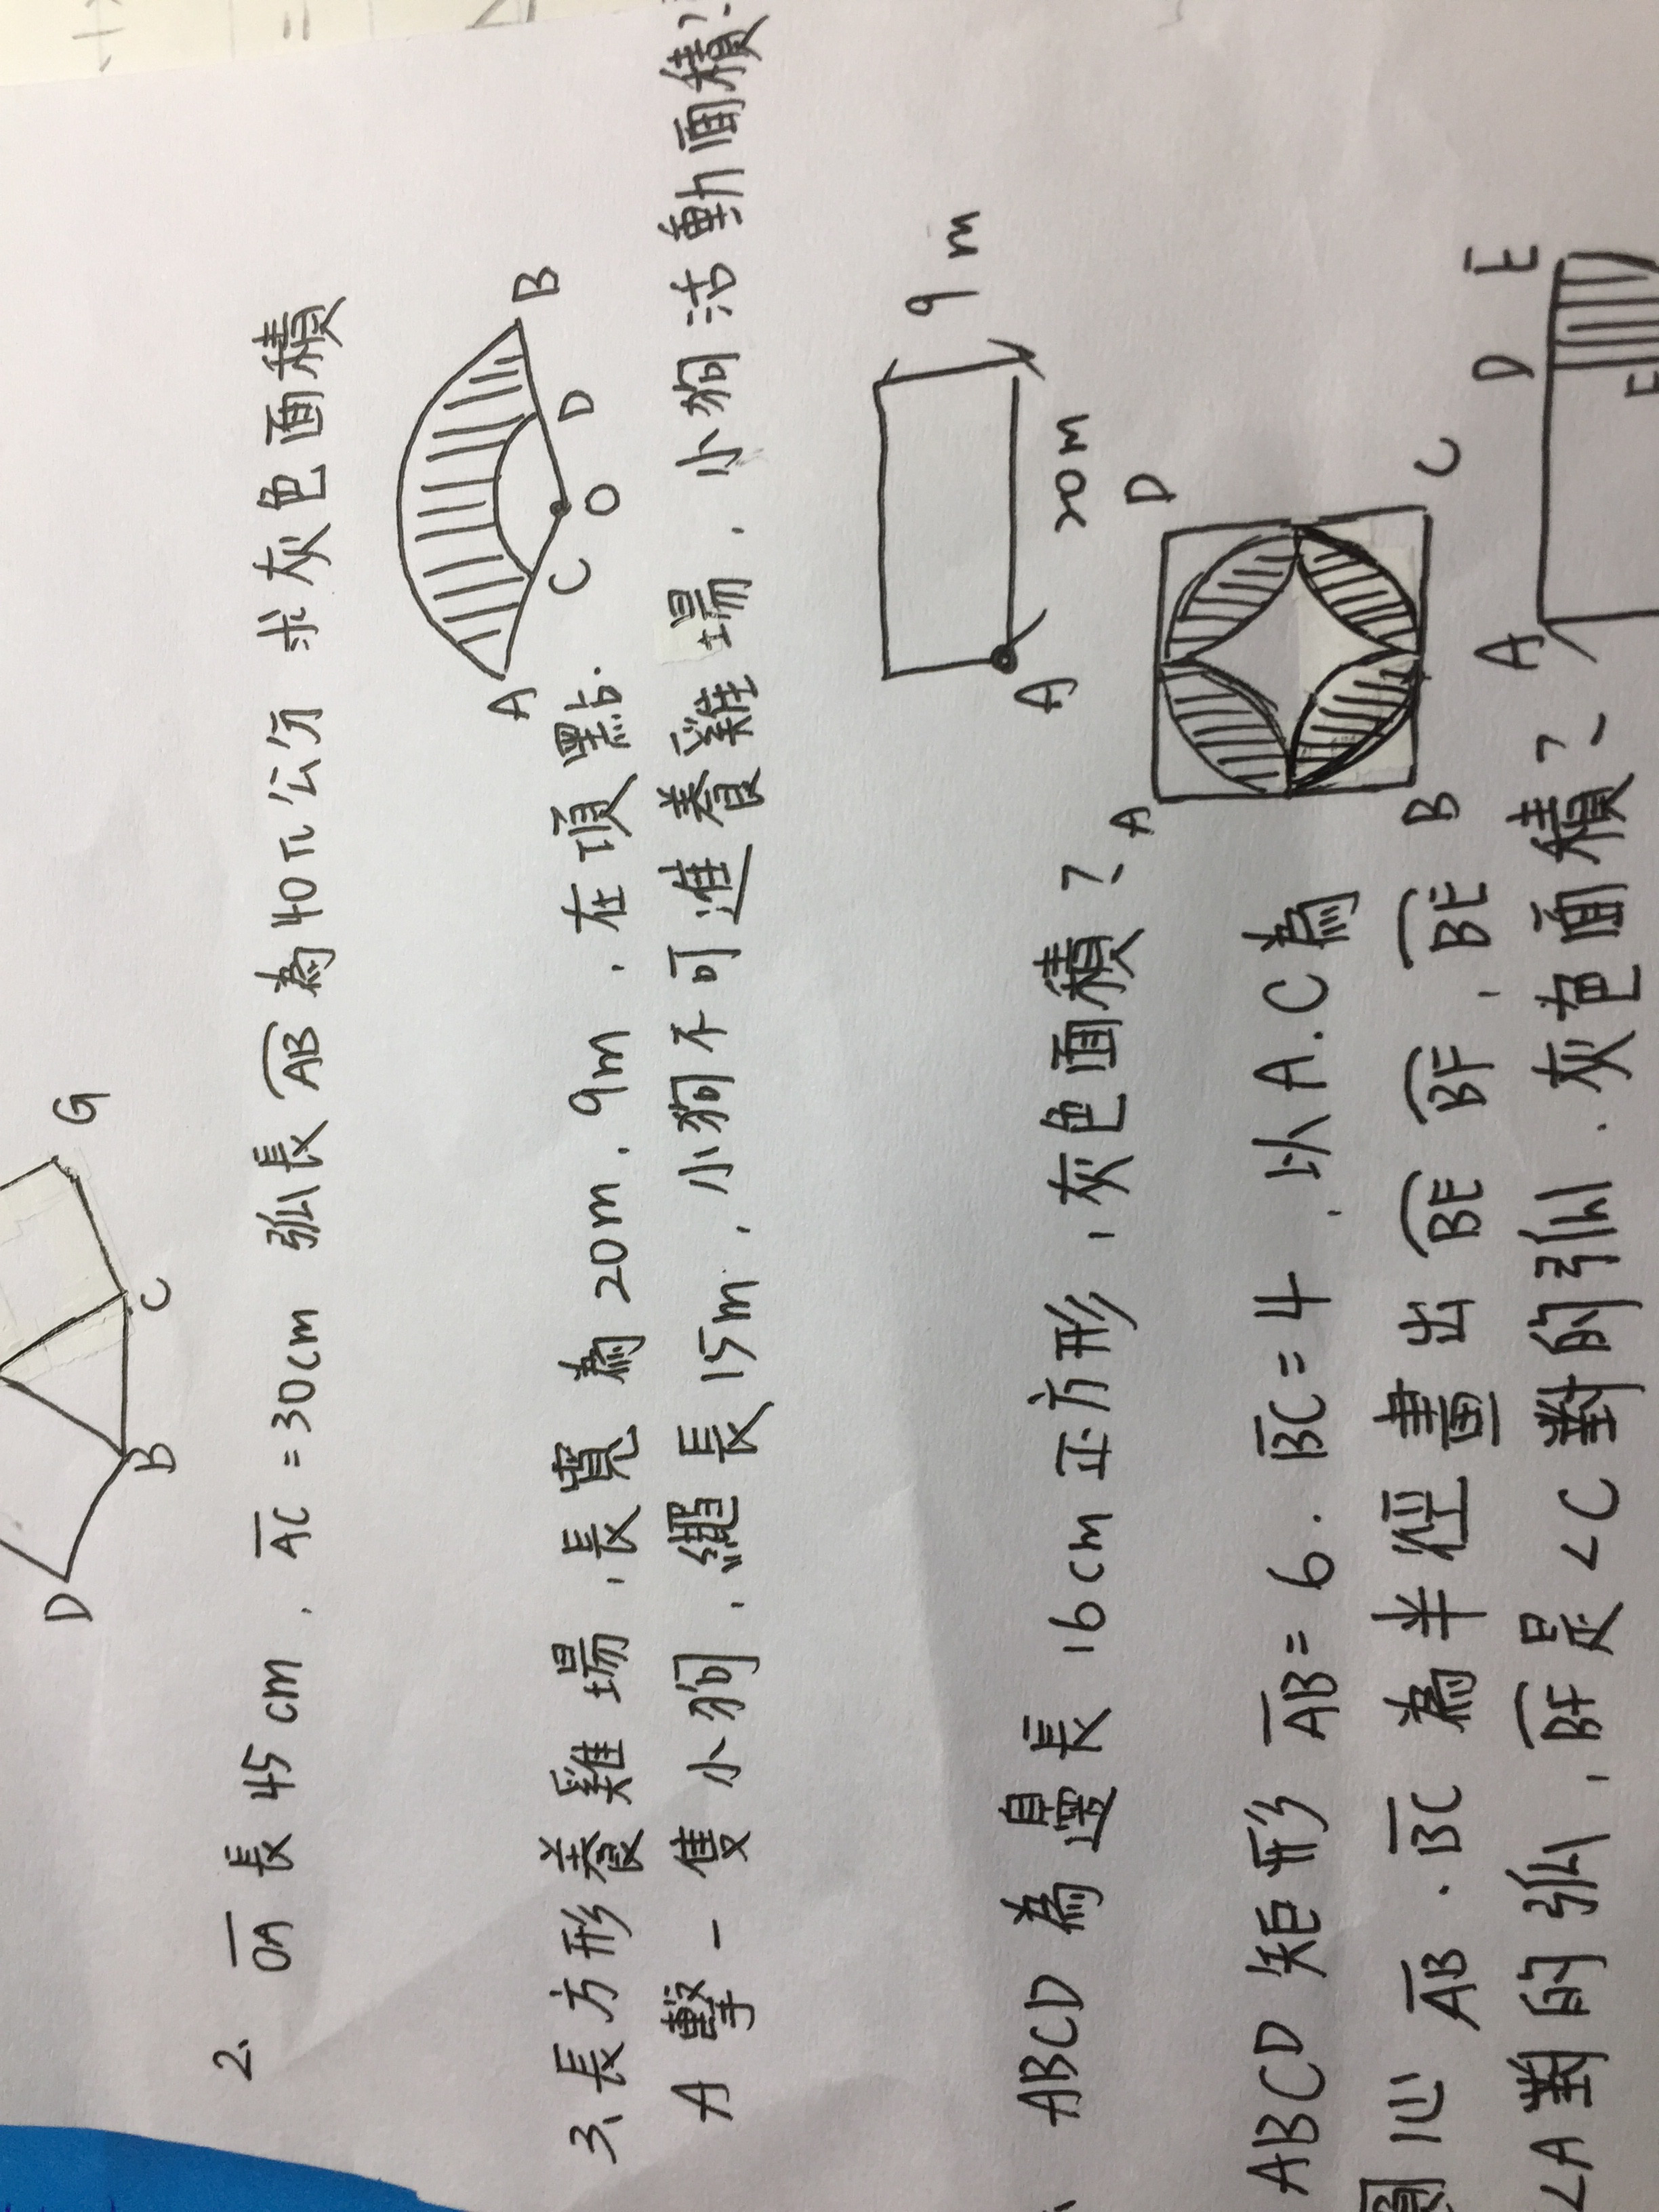 G
D
B
C
2. OA 長 45 cm . AC = 30 cm 弧長 AB 為 40π 公分 求灰色面積
A
C
O
D
B
3. 長方形養雞場 . 長寬為 20m . 9m . 在頂點 .
A 擊一隻小狗 . 繩長 15m . 小狗不可進養雞場 . 小狗活動面積?
9 m
20m
A
ABCD 為邊長 16cm 正方形 , 灰色面積?
A
D
B
C
ABCD 矩形 AB = 6 . BC = 4 . 以 A.C 為
圓心 AB . BC 為半徑畫出 BE BF . BE
∠A 對的弧 , BF 是 ∠C 對的弧 . 灰色面積?
A
D
E
F